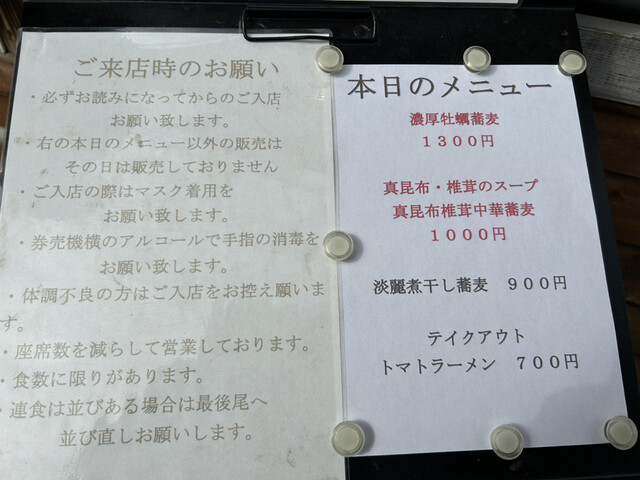 ご来店時のお願い
・必ずお読みになってからのご入店
お願い致します。
・右の本日のメニュー以外の販売は
その日は販売しておりません
・ご入店の際はマスク着用を
お願い致します。
・券売機横のアルコールで手指の消毒を
お願い致します。
・体調不良の方はご入店をお控え願いま
す。
・座席数を減らして営業しております。
・食数に限りがあります。
・連食は並びある場合は最後尾へ
並び直しお願いします。
本日のメニュー
濃厚牡蠣蕎麦
１３００円
真昆布・椎茸のスープ
真昆布椎茸中華蕎麦
１０００円
淡麗煮干し蕎麦　９００円
テイクアウト
トマトラーメン　７００円